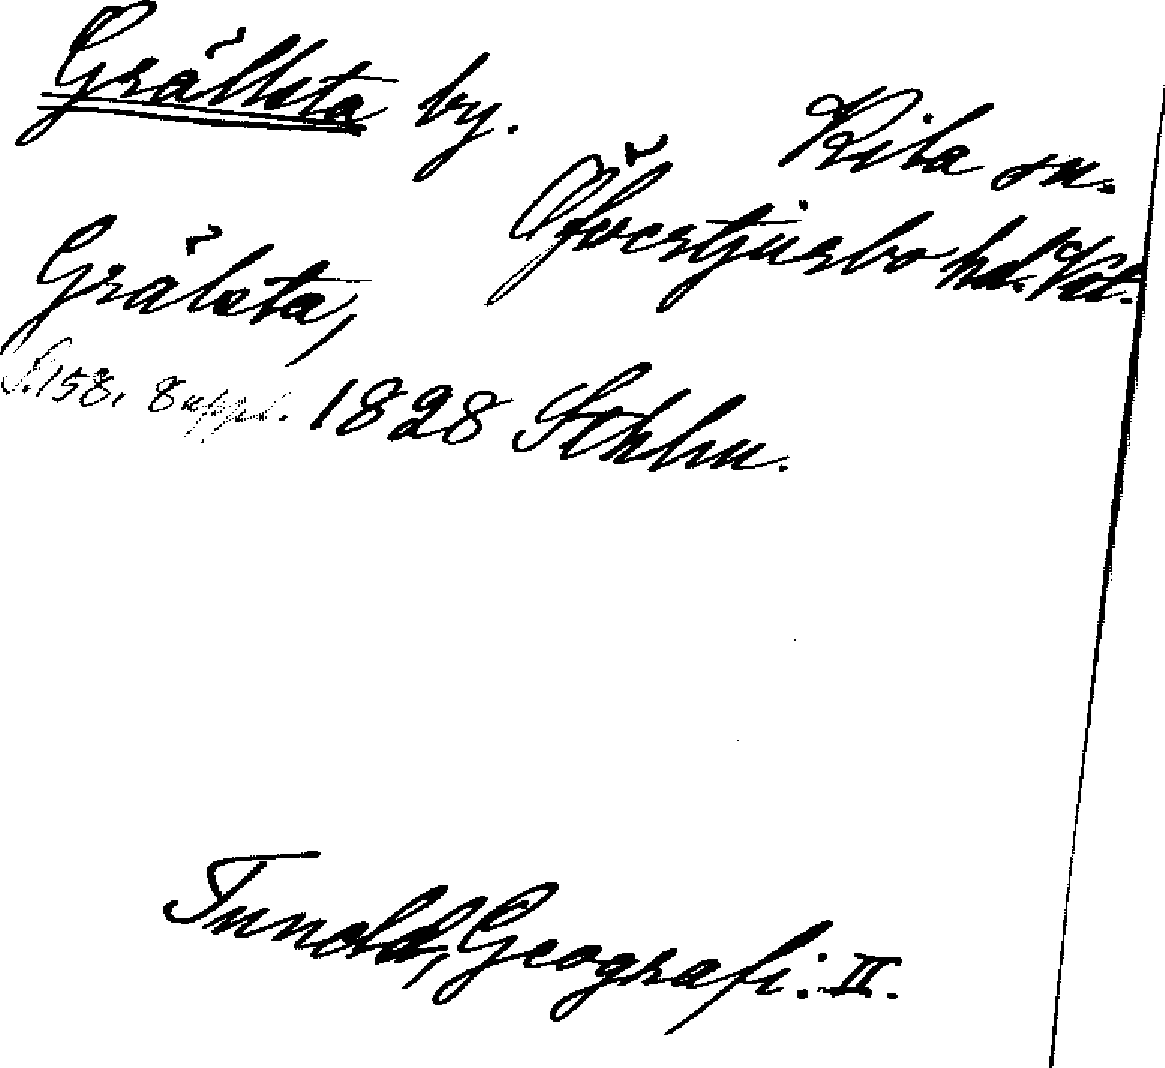 Grällsta by.
Kila sn.
Öfvertjurbo hd. Vstl.
Grälsta,
S. 158, Suppl. 1828 Sthlm.
Tunold, Geografi. II.